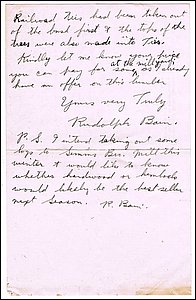 Railroad ties had been taken out
of the land first & the tops of the
trees were also made into Ties.
Kindly let me know your
at the mill yard
you can pay for same, as I already
have an offer on this lumber
Yours very Truly
Rudolph Bain.
P.S. I intend taking out some
logs to Simons Bros. Mill this
winter & would like to know
whether hardwood or hemlock
would likely be the best seller
next Season. R. Bain.